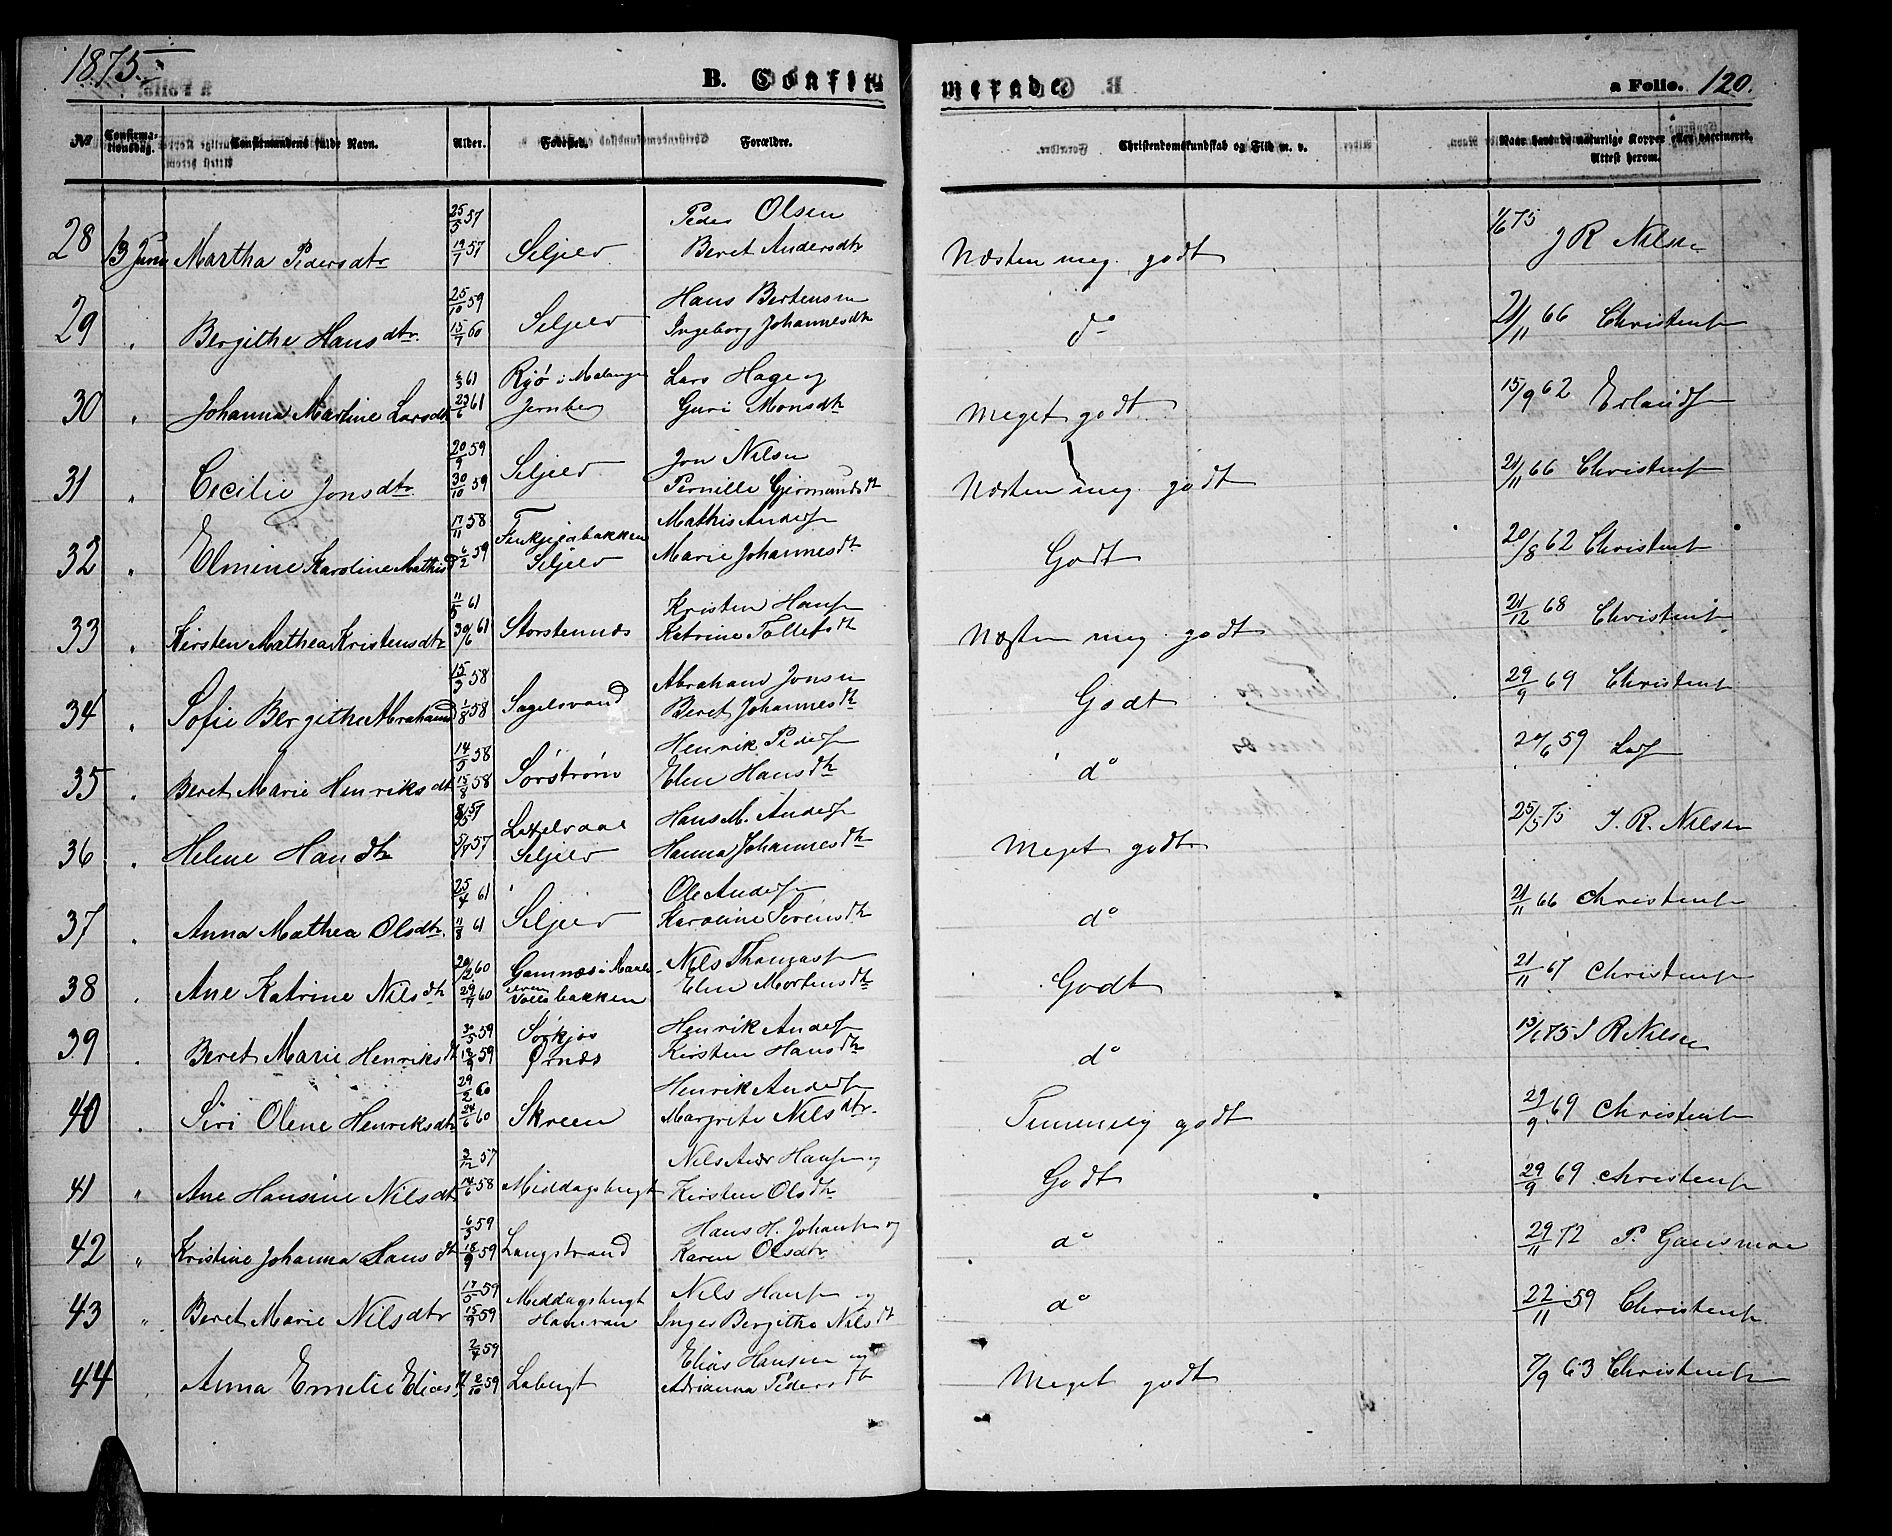 1875.
B. Confirmerede.
a Folio. 120.
No
Confirmationsdag.
Confirmandens fulde Navn.
Alder.
Fødested.
Forældre.
Christendomskundskab og Flid m. v.
Naar havt de naturlige Kopper eller vaccineret, Attest herom.
28 13 Juni Martha Pedersdtr 25/5 57 19/7 57 Seljelv Peder Olsen Beret Andersdtr Næsten meg. godt 1/6 75 J R Nilsen
29 " Bergithe Hansdtr. 25/10 59 15/7 60 Seljelv Hans Bertensen Ingeborg Johannesdtr do 21/11 66 Christens
30 " Johanna Martine Larsdtr 6/3 61 23/6 61 Ryø i Malangen Jernberg Lars Hage og Guri Monsdtr Meget godt 15/9 62 Erlands
31 " Cecilie Jonsdtr 20/9 59 30/10 59 Seljelv Jon Nilsen Pernille Gjermundsdtr Næsten meg. godt 21/11 66 Christens
32 " Elmine Karoline Mathisd 17/11 58 6/2 59 Seljelv Mathis Anders Marie Johannesdtr Godt 20/8 62 Christens
33 " Kirsten Mathea Kristensdtr 11/5 61 30/6 61 Storstennæs Kristen Hans Katrine Tollefsdtr Næsten meg. godt 21/12 68 Christens
34 " Sofie Bergithe Abrahamsd 15/3 58 1/8 58 Sagelvvand Abraham Jonsen Beret Johannesdtr Godt 29/9 69 Christens
35 " Beret Marie Henriksdtr 14/5 58 15/8 58 Sørstrøm Henrik Peders Elen Hansdtr do 20/6 59 Lars
36 " Helene Handtr 57 57 Seljelv Hans M. Anders Hanna Johannesdtr Meget godt 25/5 75 J. R. Nilsen
37 " Anna Mathea Olsdtr. 25/4 61 11/8 61 Seljelv Ole Anders Karoline Sørensdtr do 21/11 66 Christens
38 " Ane Katrine Nilsdtr 20/2 60 29/7 60 Gamnæs i Maalselven Nils Thomas Elen Mortensdtr Godt 21/11 67 Christens
39 " Beret Marie Henriksdtr 30/5 59 59 Sørkjos Ørnæs Henrik Anders Kirsten Hansdtr do 13/6 75 J R Nilsen
40 " Siri Olene Henriksdtr 29/2 60 24/6 60 Skreen Henrik Anders Margrite Nilsdtr. Temmelig godt 29/9 69 Christens
41 " Ane Hansine Nilsdtr 3/12 57 14/6 58 Middagsbugt Nils Andr Hans og Kirsten Olsdtr Godt 29/9 69 Christens
42 " Kristine Johanna Hansdtr 6/5 59 18/9 59 Langstrand Hans H. Johans og Karen Olsdtr do 29/11 72 P. Gausmoe
43 " Beret Marie Nilsdtr 17/5 59 15/9 59 Middagsbugt Nils Hans og Inger Bergithe Nilsdtr do 22/11 59 Christens
44 " Anna Emelie Elias 2/4 59 2/10 59 Labugt Elias Hansen og Adrianna Pedersdtr Meget godt 7/9 63 Christens